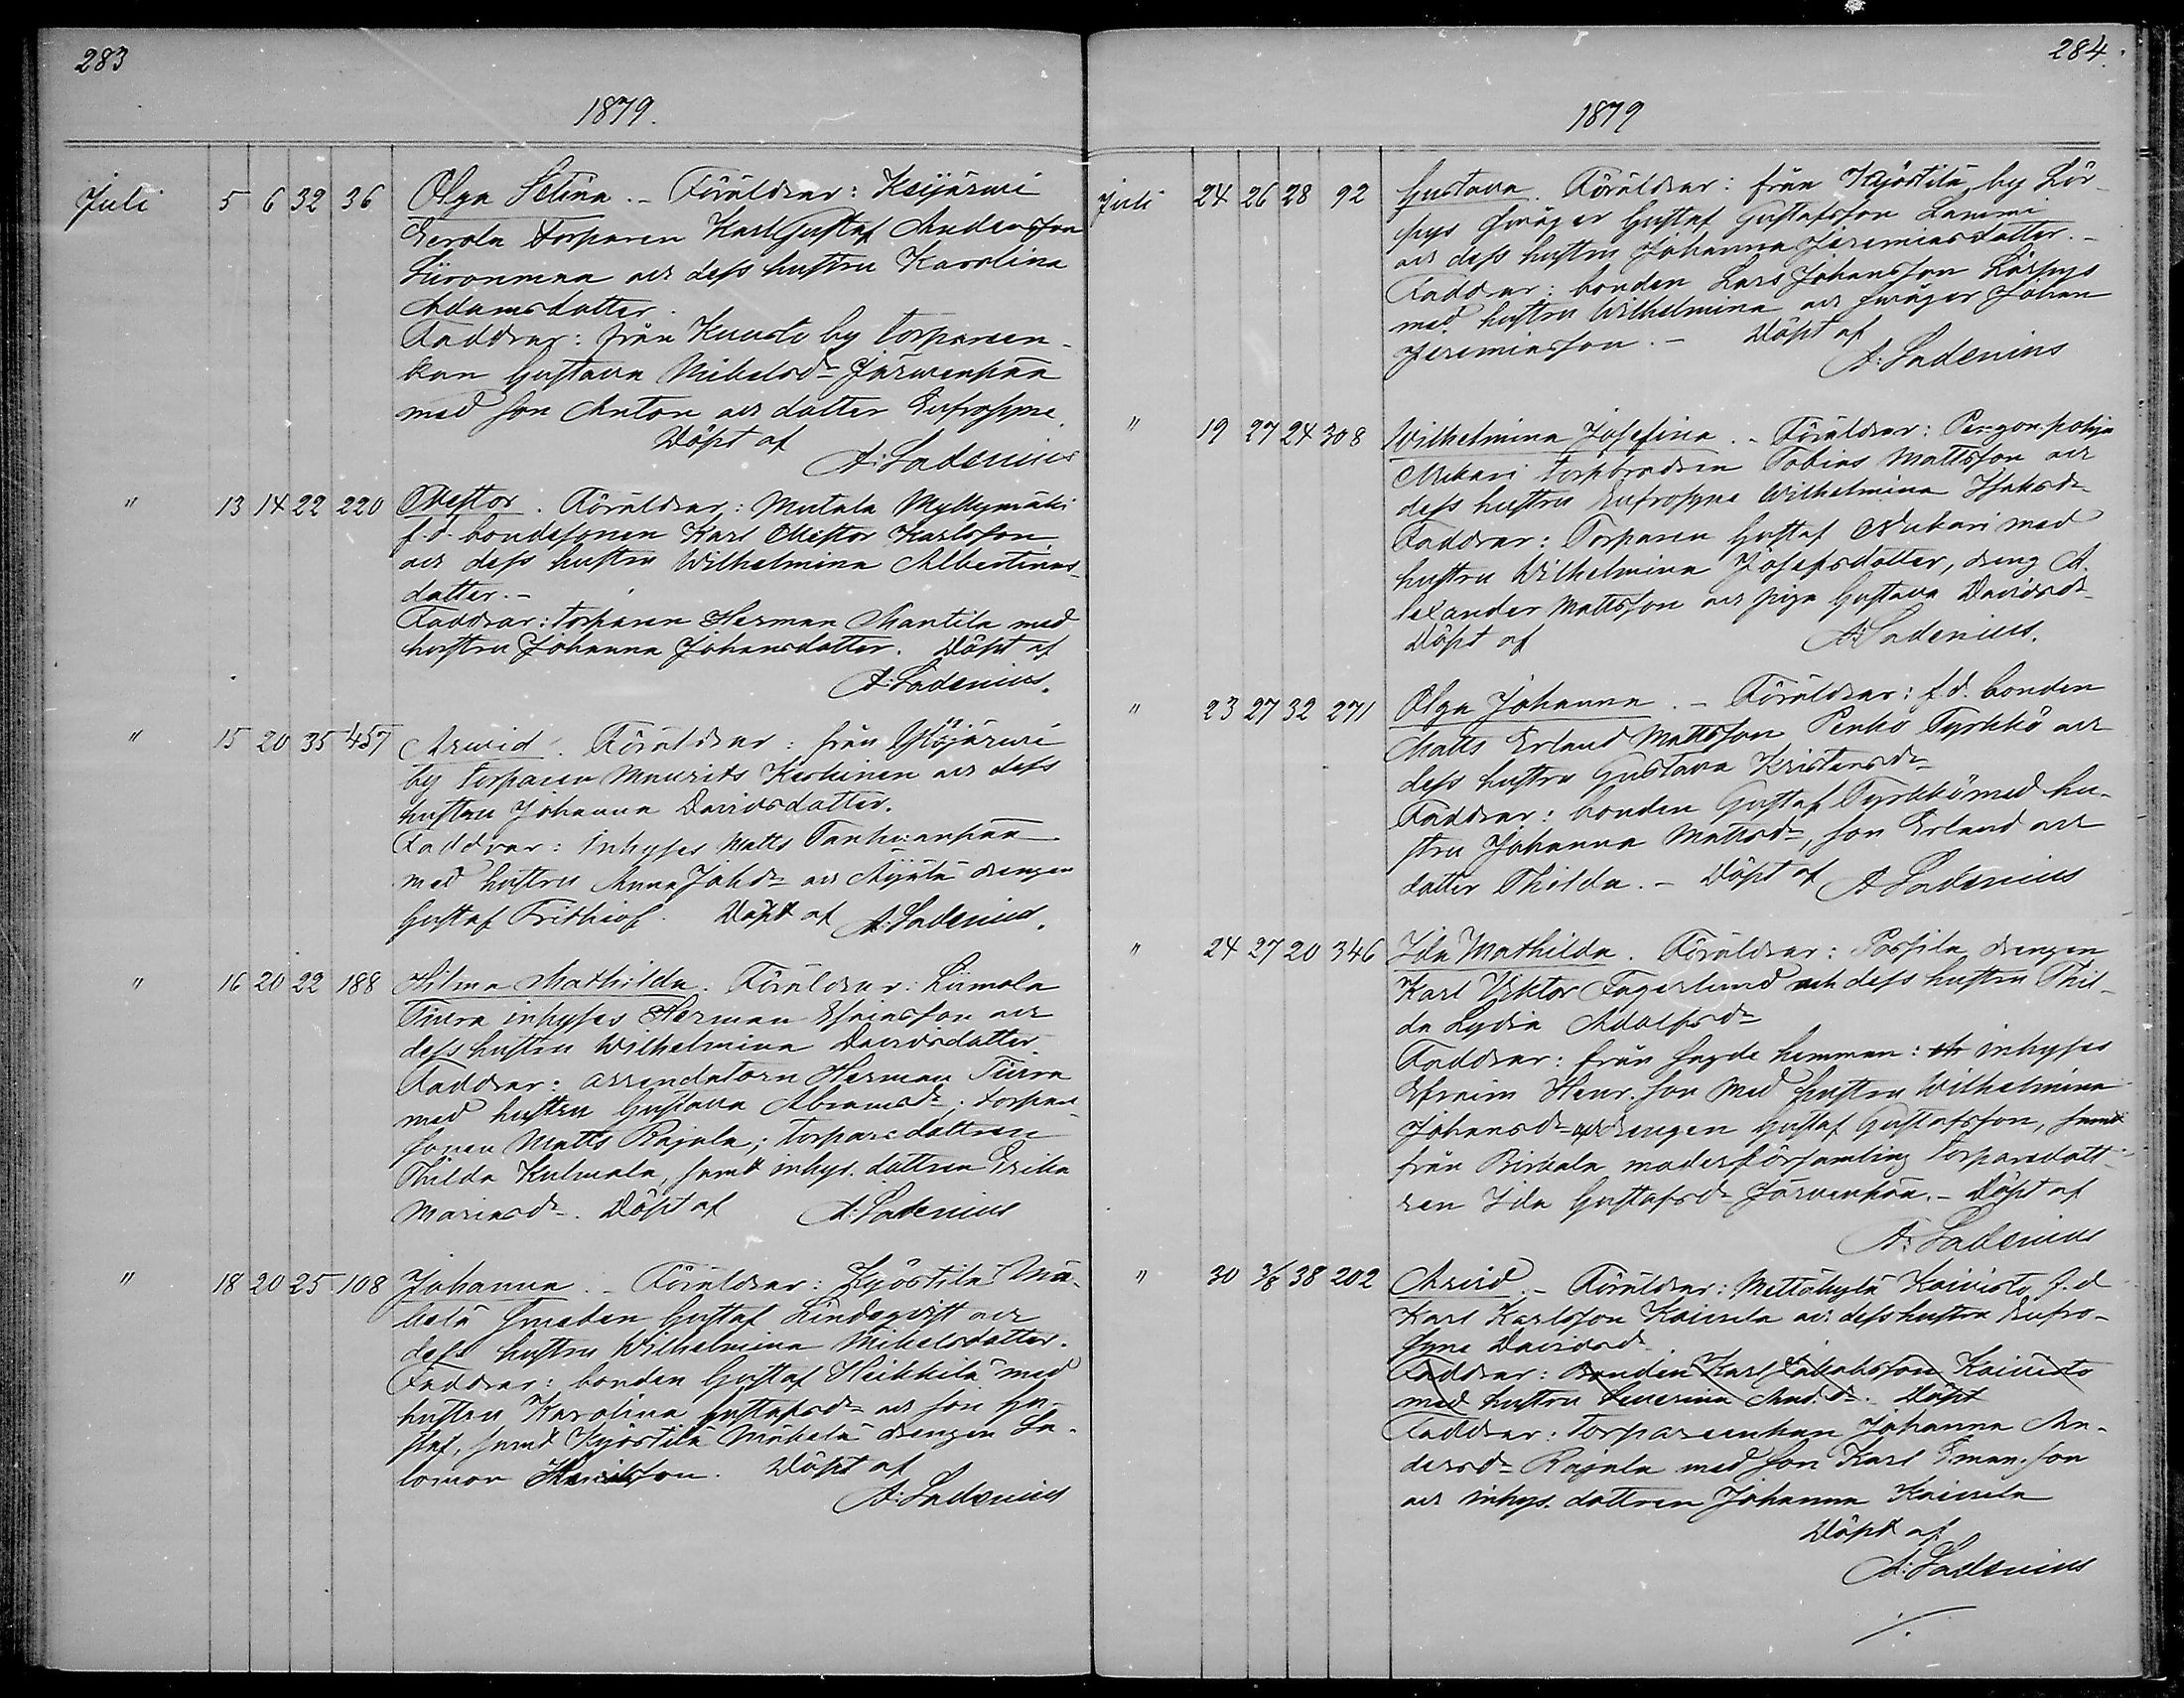 283
1879.
Juli 5 6 32 36 Olga Selina. - Föräldrar: Keijärwi
Eerola torparen Karl Gustaf Andersson
Liuronmaa och dess hustru Karolina
Adamsdotter.
Faddrar: från Kuusto by torparen-
kan Gustava Mikelsdr Järwenpää
med son Anton och dotter Eufrosyne.
Döpt af
A: Ladenius
" 13 14 22 220 Nestor. Föräldrar: Mutala Myllymäki
f.d. bondesonen Karl Nestor Karlsson
och dess hustru Wilhelmina Albertina-
dotter. -
Faddrar: torparen Herman Mantila med
hustru Johanna Johansdotter. Döpt af
A: Ladenius.
" 15 20 35 457 Arwid. Föräldrar: från Ylöjärwi
by torparen Maurits Keskinen och dess
hustru Johanna Davidsdotter.
Faddrar: inhyses Matts Tanhuanpää
med hustru Anna Johdr och Äijälä drengen
Gustaf Frithiof. Döpt af A: Ladenius.
" 16 20 22 188 Hilma Mathilda. Föräldrar: Limola
Tiura inhyses Herman Efraimsson och
dess hustru Wilhelmina Davidsdotter
Faddrar: arrendatorn Herman Tiura
med hustru Gustava Abramsdr; torpare
sonen Matts Rajala; torparedottren
Thilda Kulmala, samt inhys. dottren Erika
Mariasdr. Döpt af A: Ladenius
" 18 20 25 108 Johanna. - Föräldrar: Kyöstilä Mä-
kelä smeden Gustaf Lindeqvist och
dess hustru Wilhelmina Mikelsdotter.
Faddrar: bonden Gustaf Heikkilä med
hustru Karolina Gustafsdr och son Gu-
staf, samt Kyöstilä Mäkelä drengen Sa-
lomon Henriksson. Döpt af
A: Ladenius
284.
1879
Juli 24 26 28 92 Gustava. Föräldrar: från Kyöstilä by Lör-
pys swåger Gustaf Gustafsson Lammi
och dess hustru Johanna Jeremiasdotter. -
Faddrar: bonden Lars Johansson Lörpys
med hustru Wilhelmina och swåger Johan
Jeremiasson. - Döpt af
A: Ladenius
" 19 27 24 308 Wilhelmina Josefina. - Föräldrar: Pengonpohja
Mukari torpbrodren Tobias Mattsson och
dess hustru Eufrosyne Wilhelmina Isaksdr
Faddrar: Torparen Gustaf Mukari med
hustru Wilhelmina Josefsdotter, dreng A-
lexander Mattsson och piga Gustava Davidsdr
Döpt af A: Ladenius.
" 23 27 32 271 Olga Johanna. - Föräldrar: f.d. bonden
Matts Erland Mattsson Penkö Tyrkkö och
dess hustru Gustava Kristersdr
Faddrar: bonden Gustaf Tyrkkö med hu-
stru Johanna Mattsdr, son Erland och
dotter Thilda. - Döpt af A Ladenius
" 24 27 20 346 Ida Mathilda. Föräldrar: Pässilä drengen
Karl Viktor Fagerlund och dess hustru Thil-
da Lydia Adolfsdr
Faddrar: från sagde hemman: inhyses
Efraim Henr.son med hustru Wilhelmina
Johansdr och drengen Gustaf Gustafsson, samt
från Birkala moderförsamling torparedott-
ren Ida Gustafsdr Järvenpää. - Döpt af
A: Ladenius
" 30 3/8 38 202 Arvid. - Föräldrar: Mettäkylä Koivisto f.d
Karl Karlsson Koivula och dess hustru Eufro-
syne Davidsdr
Faddrar: Bonden Karl Jakobsson Koivisto
med hustru Severina And.dr. Döpt
Faddrar: Torpareenkan Johanna An-
dersdr Rajala med son Karl Eman.son
och inhys. dottren Johanna Koivula
Döpt af
A: Ladenius
./.